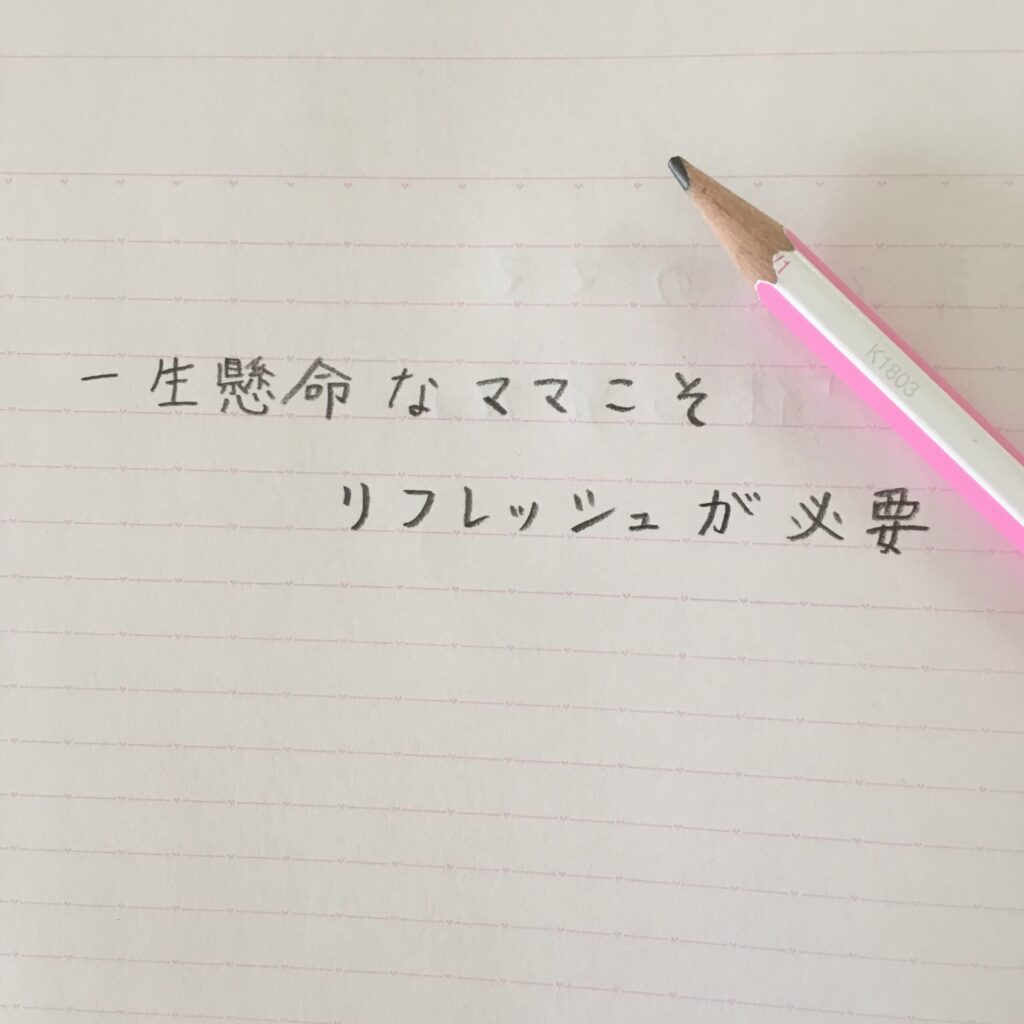 一生懸命なママこそ
リフレッシュが必要
K1803